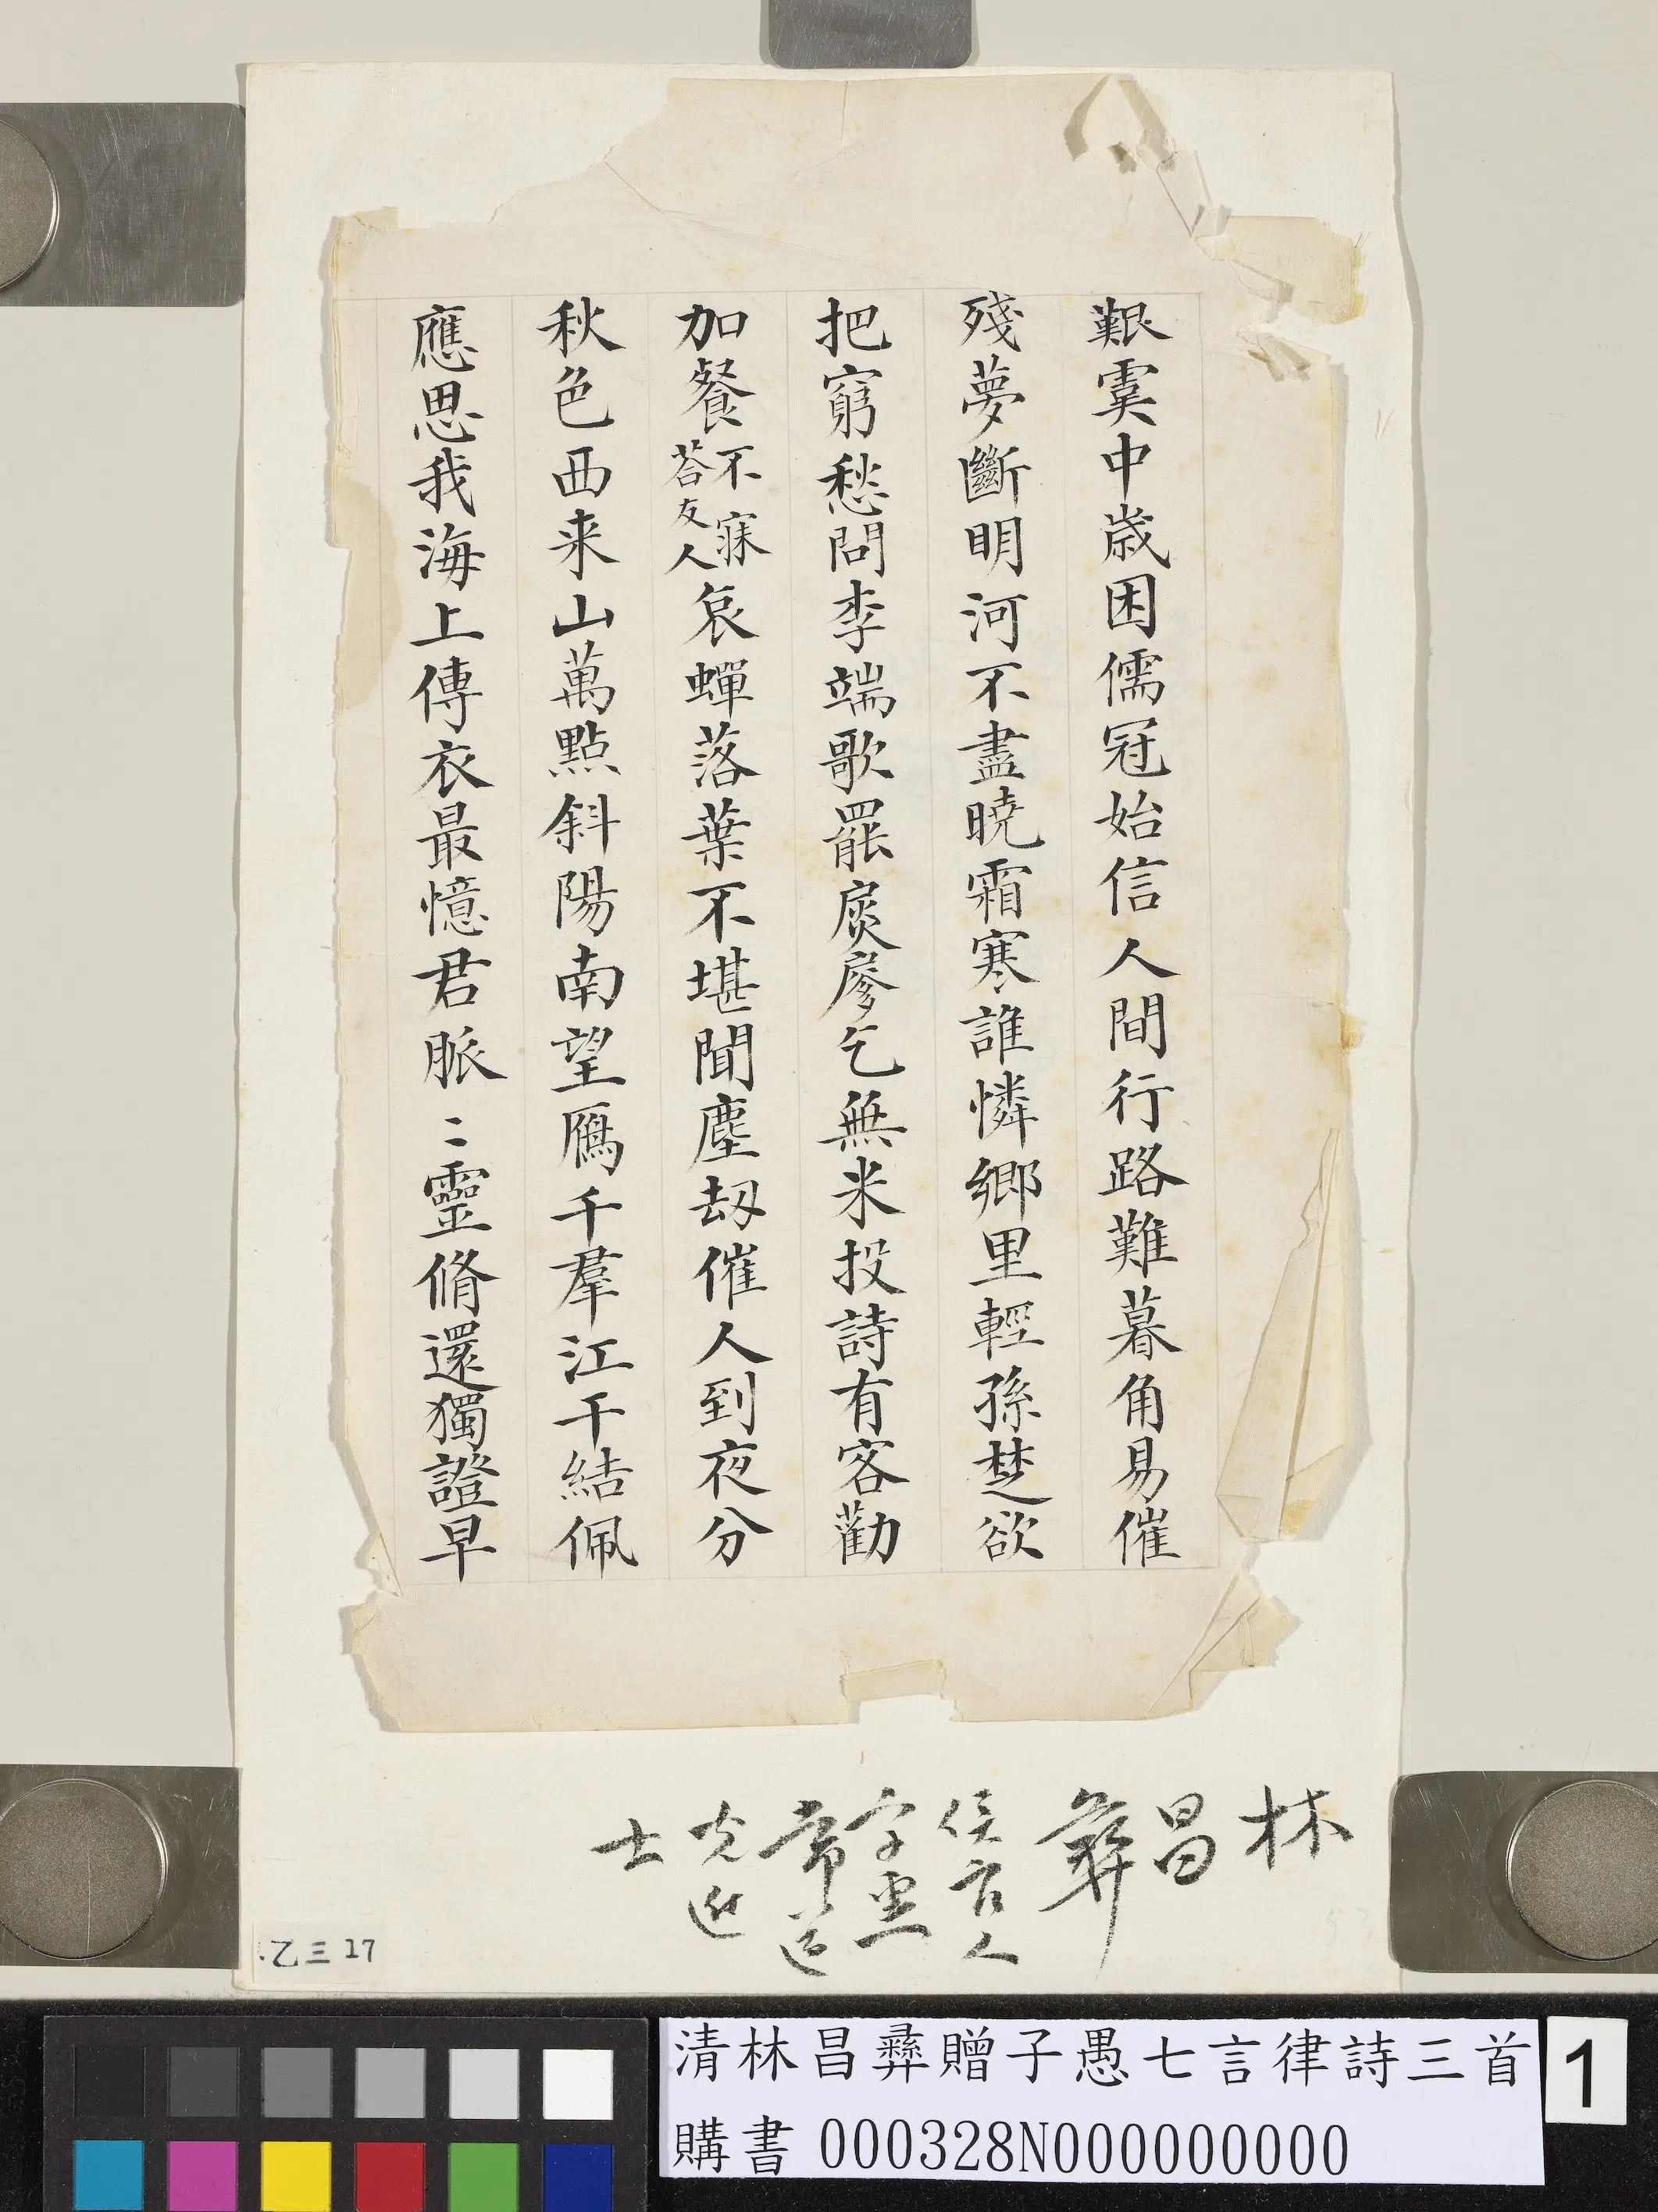 艱虞中歲困儒冠始信人間行路難暮角易催
殘夢斷明河不盡曉霜寒誰憐鄉里輕孫楚欲
把窮愁問李端歌罷扊扅乞無米投詩有客勸
加餐不寐荅友人哀蟬落葉不堪聞塵刼催人到夜分
秋色西来山萬點斜陽南望鴈千羣江干結佩
應思我海上傳衣最憶君脈〻靈脩還獨證早
林昌彝
侯官人
字
常
士
乙三17
清林昌彞贈子愚七言律詩三首
購書 000328N000000000
1